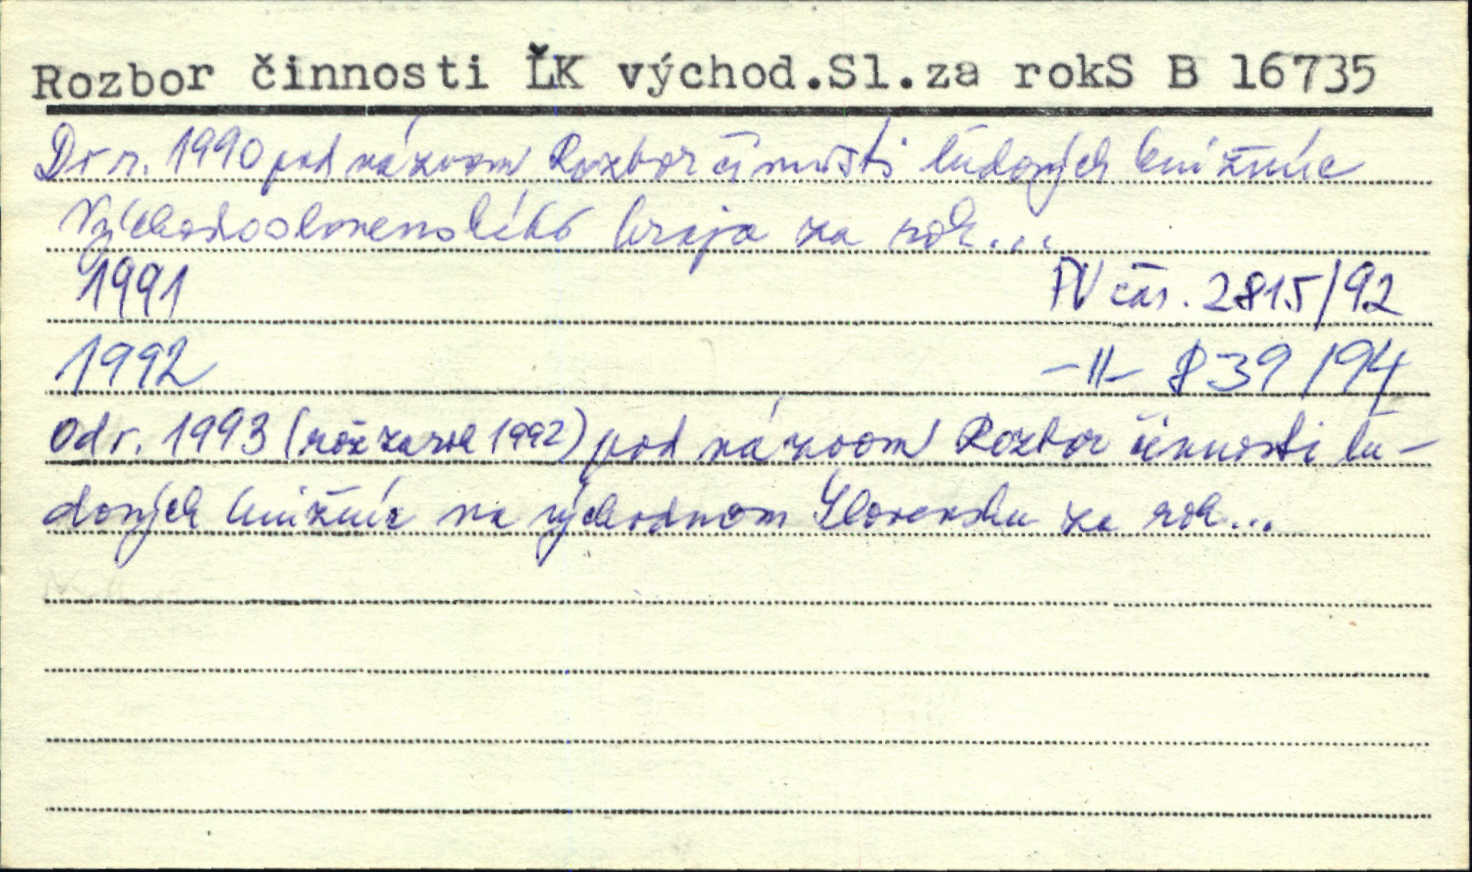 Rozbor činnosti ĽK východ.Sl.za rokS B 16735
Do r. 1990 pod názvom Rozbor činnosti ľudových knižníc
Východoslovenského kraja za rok...
1991 PV čas. 2815/92
1992 -II- 839/94
Od r. 1993 (roč za rok 1992) pod názvom Rozbor činnosti ľu-
dových knižníc na východnom Slovensku za rok...